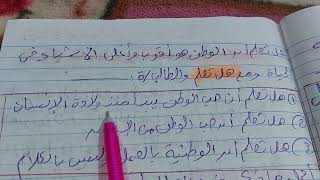 هل تعلم أن الوطن هو أقرب وأغلى الأشياء في
الحياة ومع هل تعلم والطالب/ة ........
① هل تعلم أن حب الوطن يبدأ منذ ولادة الإنسان
② هل تعلم أن حب الوطن من
③ هل تعلم أن الوطنية بالعمل وليس بالكلام